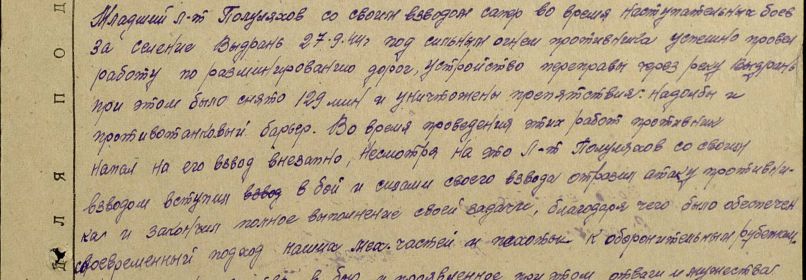 Младший л-т Полуняхов со своим взводом сапер во время наступательных боев
за селение Выдрань 27.9.44г под сильным огнем противника успешно провел
работу по разминированию дорог, устройство переправы через реку Выдрань
при этом было снято 129 мин и уничтожены препятствия: надолбы и
противотанковый барьер. Во время проведения этих работ противник
напал на его взвод внезапно, несмотря на это Л-т Полуняхов со своим
взводом вступил взвод в бой и силами своего взвода отразил атаку противни-
ка и закончил полное выполнение своей задачи, благодаря чего было обеспечен
своевременный подход наших мех. частей и пехоты к оборонительным рубежам.
в бою и проявленное при этом отваги и мужества
Д Л Я П О Д